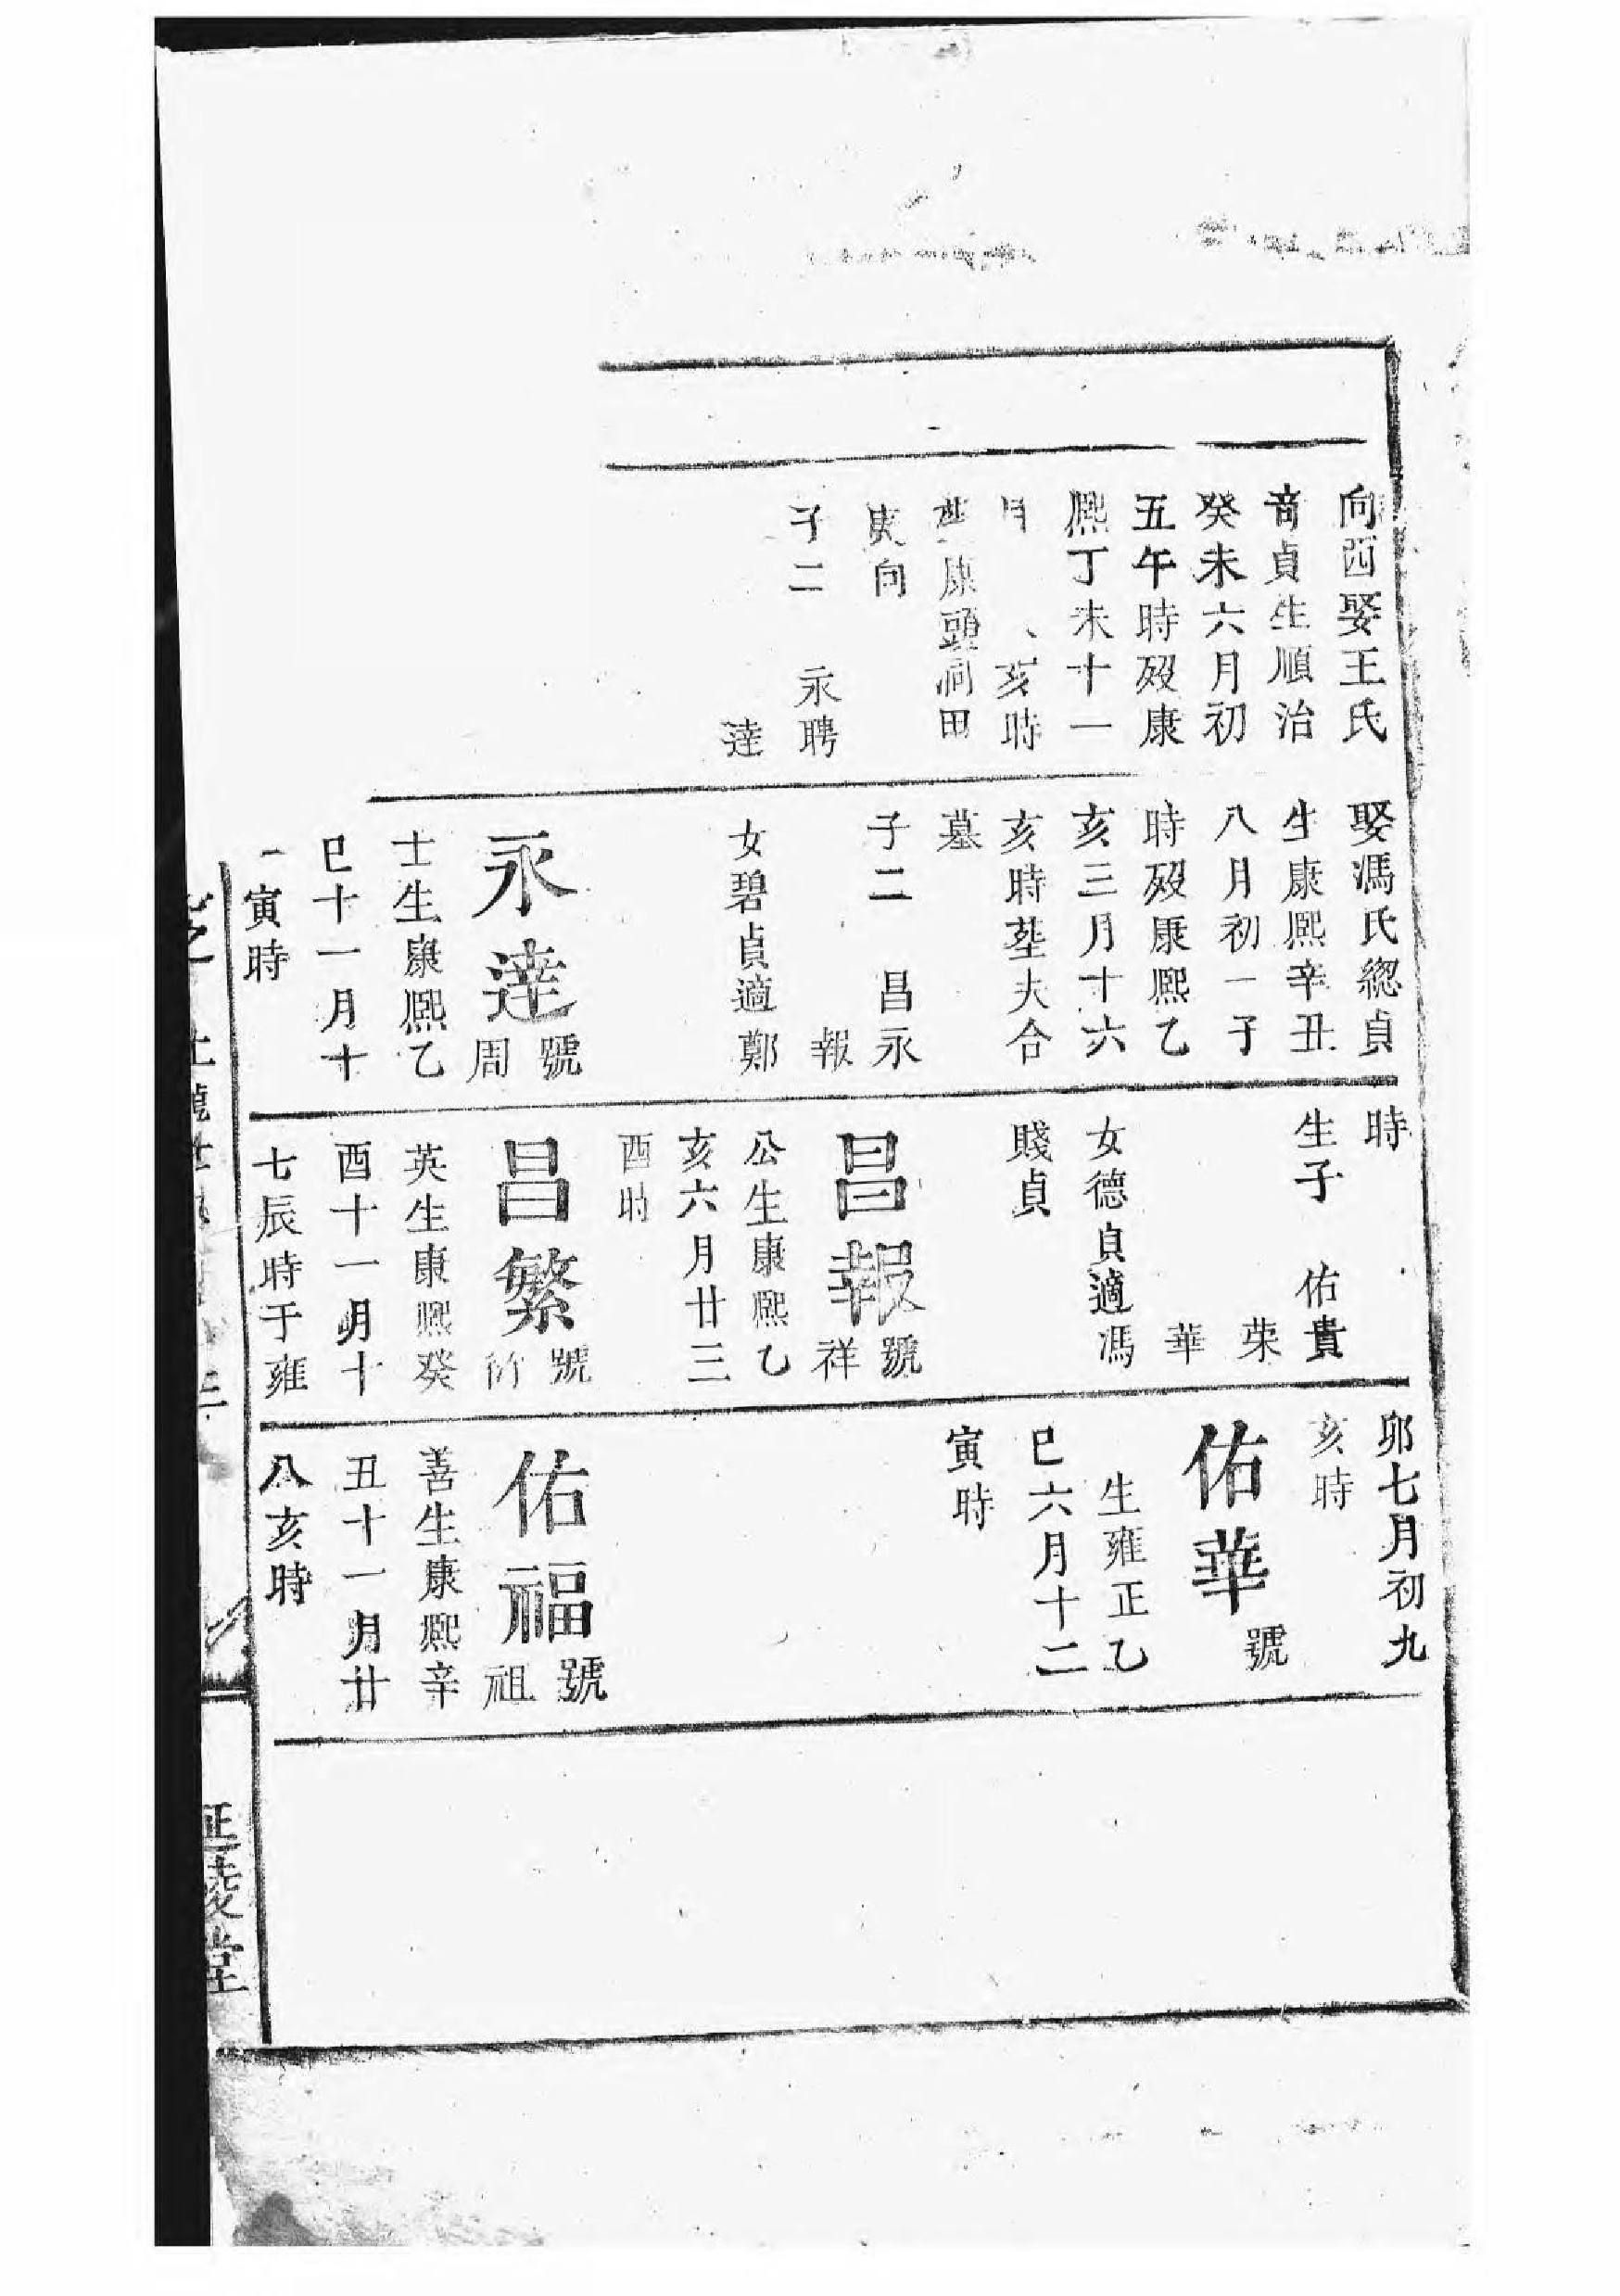 向西娶王氏
音貞生順治
癸未六月初
五午時歿康
熙丁未十一
月亥時
康頭洞田
向
子二 永聘
達
娶馮氏總貞
生康熙辛丑
八月初一子
時歿康熙乙
亥三月十六
亥時塟夫合
墓
子二 昌永
報
女碧貞適鄭
永達 號周
士生康熙乙
巳十一月十
一寅時
時
生子 佑貴
荣
華
女德貞適馮
賤貞
昌報 號祥
公生康熙乙
亥六月廿三
酉時
昌繁 號竹
英生康熙癸
酉十一月十
七辰時于雍
卯七月初九
亥時
佑華 號
生雍正乙
巳六月十二
寅時
佑福 號祖
善生康熙辛
丑十一月廿
八亥時
延陵堂